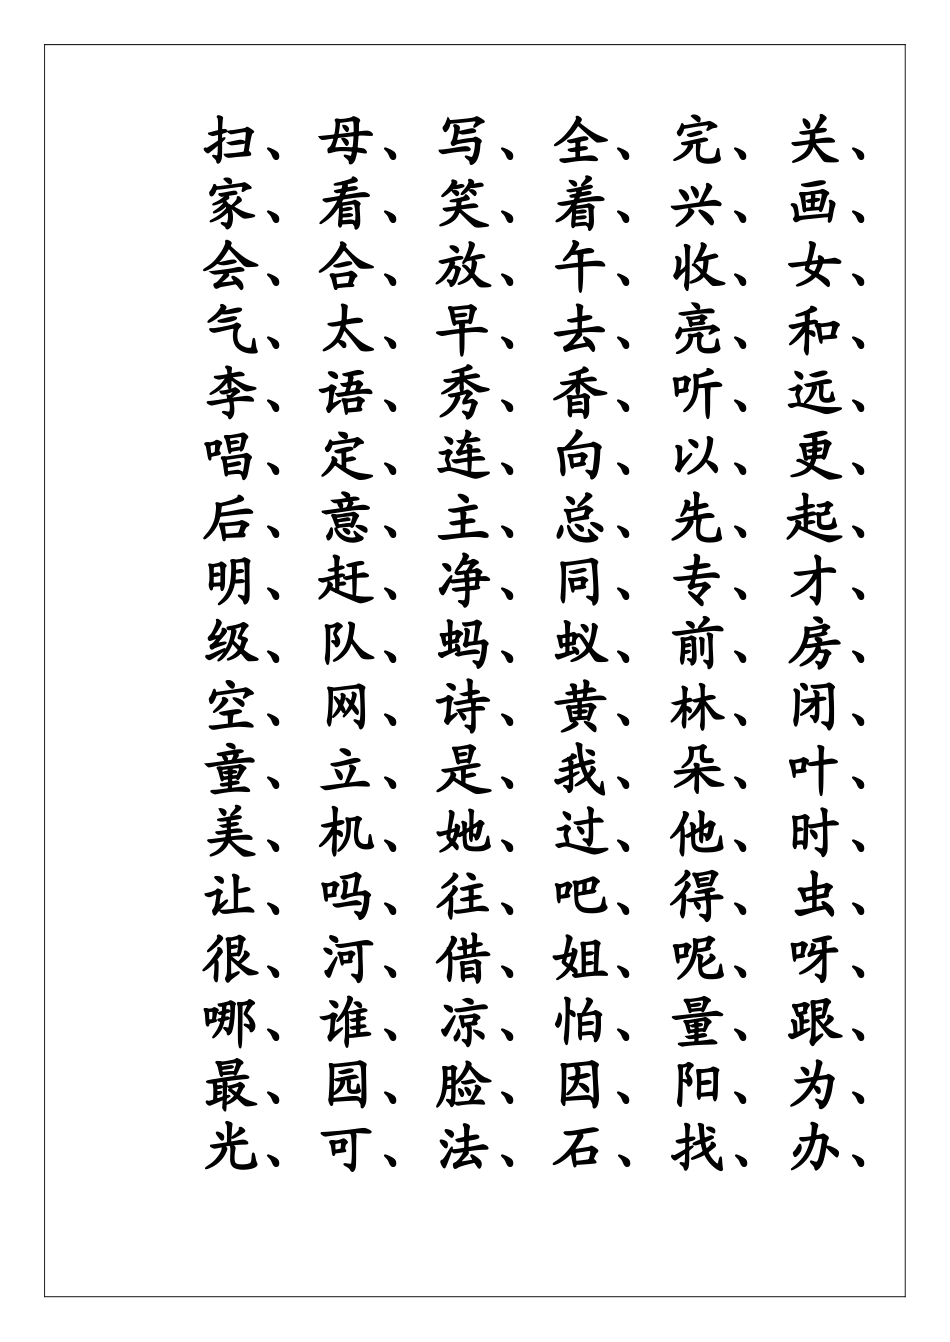 扫、母、写、全、完、关、
家、看、笑、着、兴、画、
会、合、放、午、收、女、
气、太、早、去、亮、和、
李、语、秀、香、听、远、
唱、定、连、向、以、更、
后、意、主、总、先、起、
明、赶、净、同、专、才、
级、队、蚂、蚁、前、房、
空、网、诗、黄、林、闭、
童、立、是、我、朵、叶、
美、机、她、过、他、时、
让、吗、往、吧、得、虫、
很、河、借、姐、呢、呀、
哪、谁、凉、怕、量、跟、
最、园、脸、因、阳、为、
光、可、法、石、找、办、